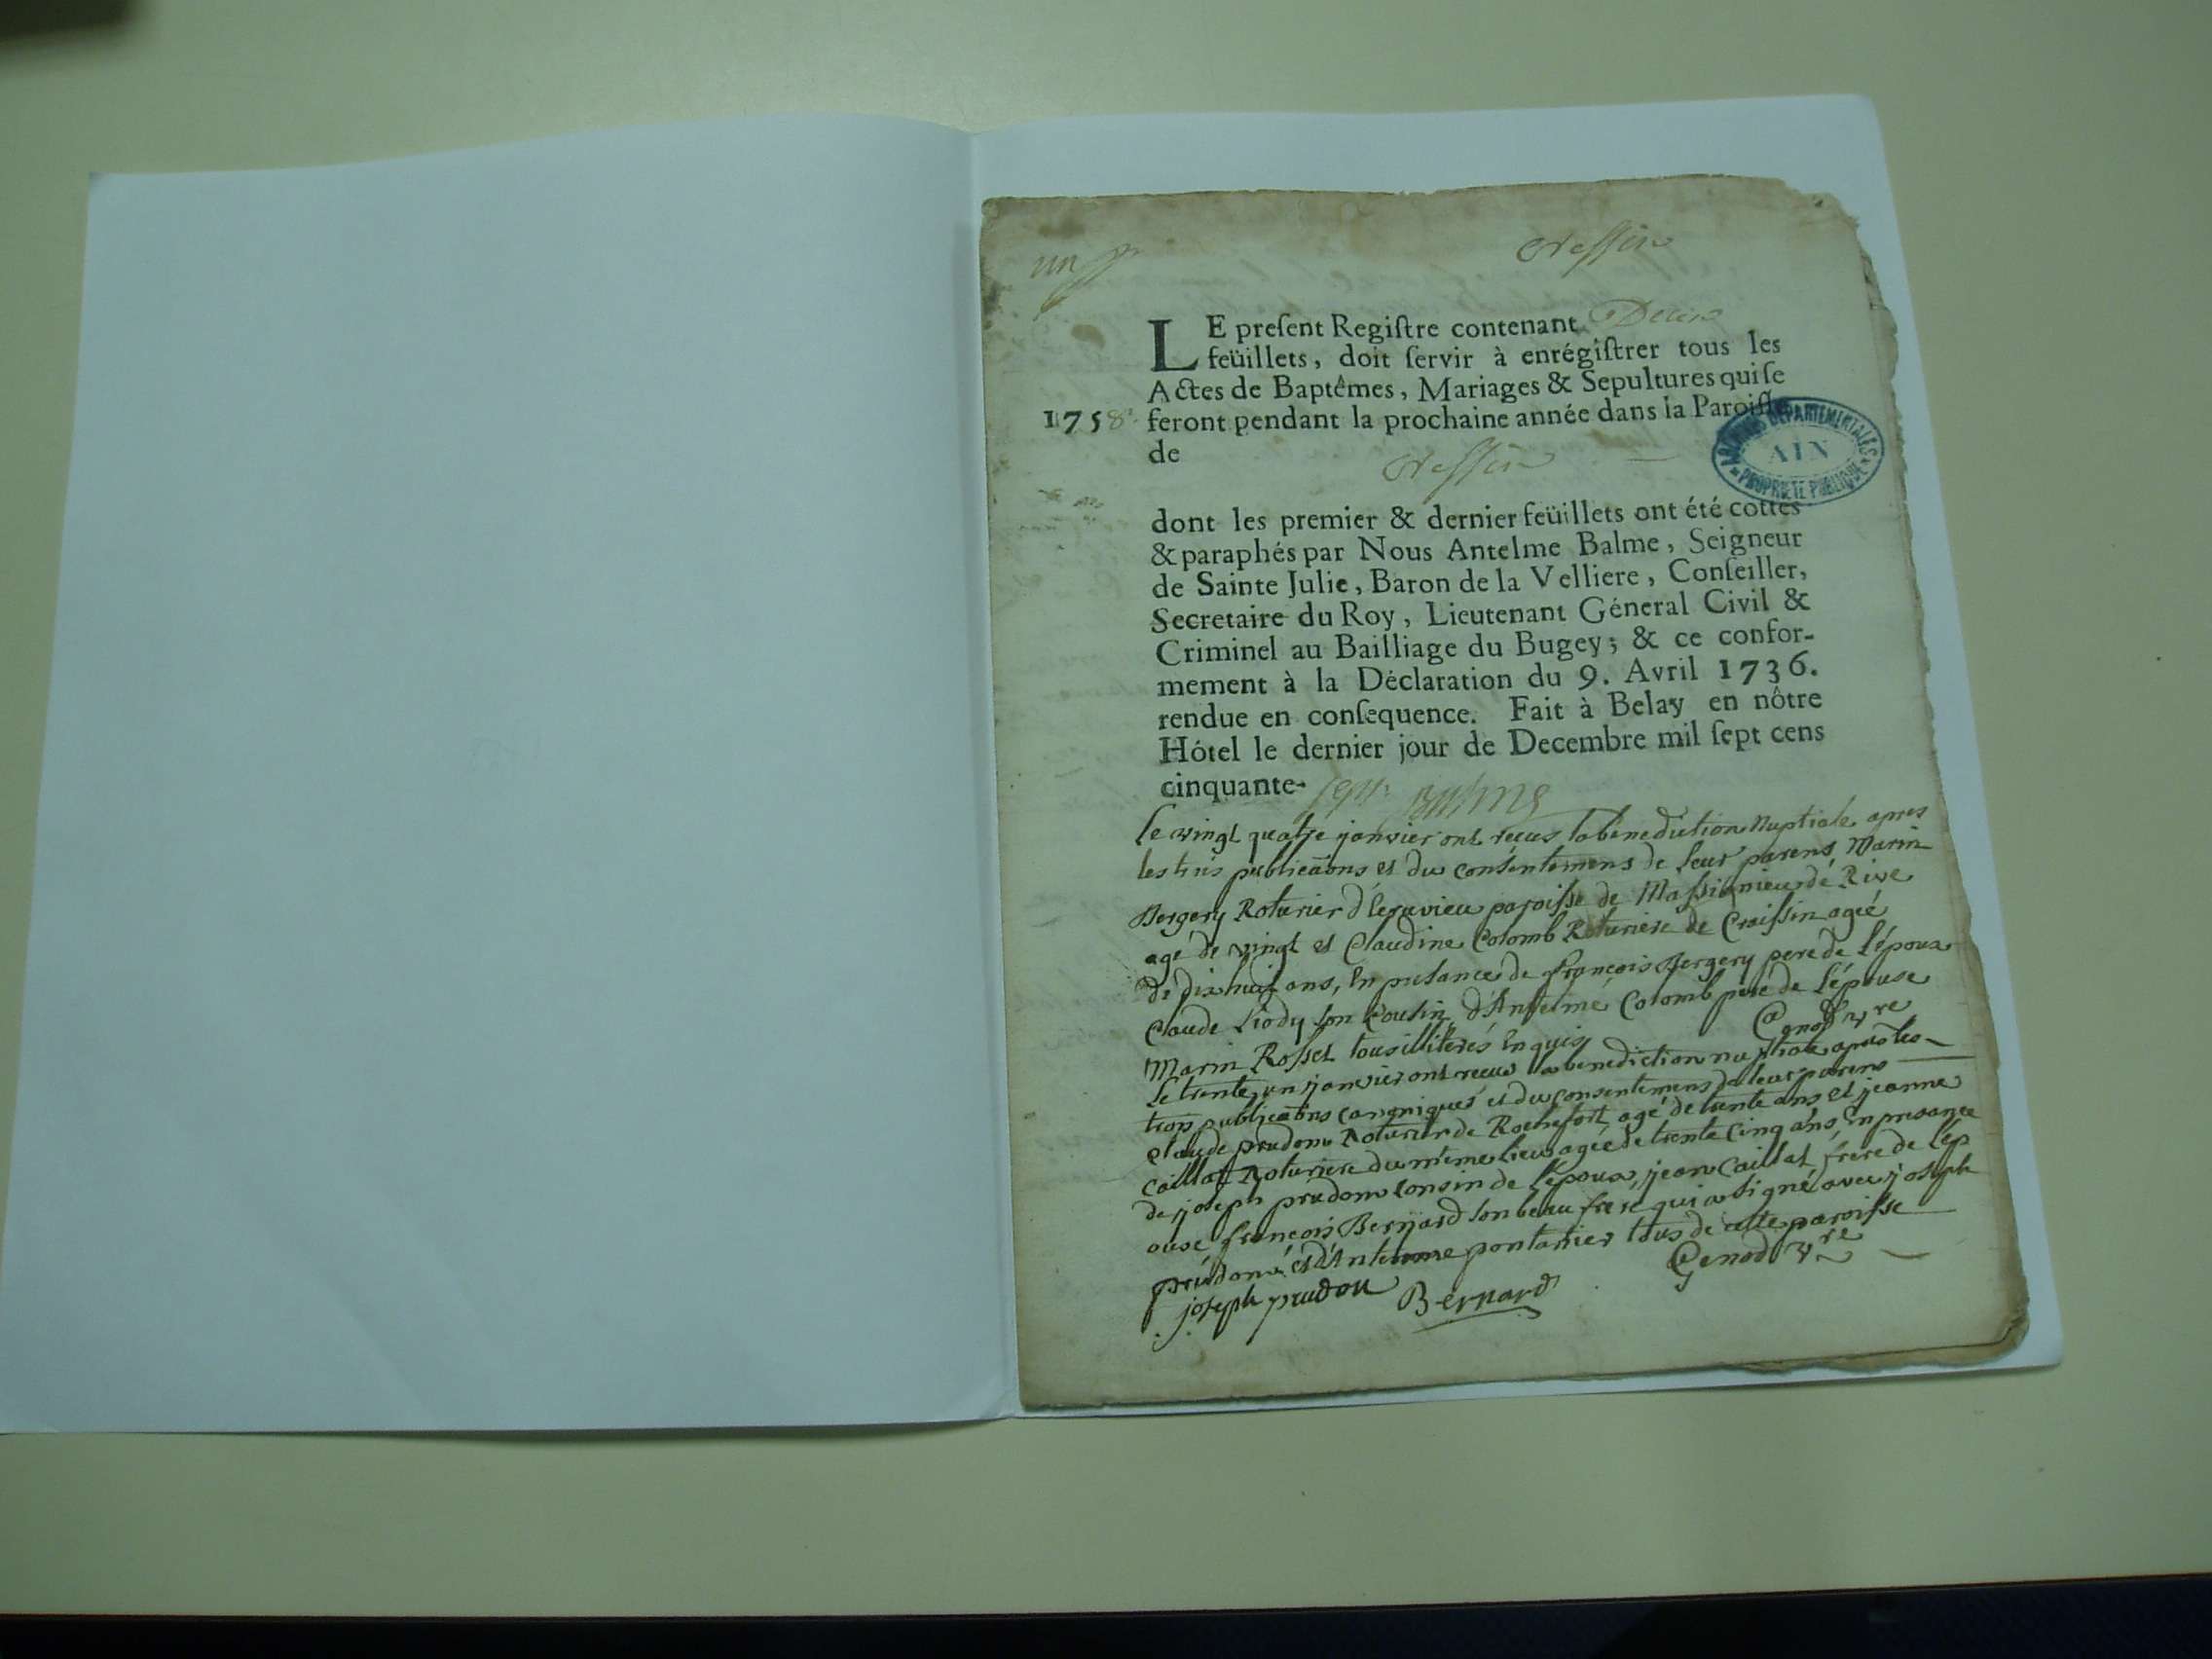 un
Cressin
LE preſent Regiſtre contenant
feüillets, doit ſervir à enrégiſtrer tous les
Actes de Baptêmes, Mariages & Sepultures qui ſe
1758. feront pendant la prochaine année dans la Paroiſſe
de
Cressin
ARCHIVES DEPARTEMENTALES
AIN
PROPRIETE PUBLIQUE
dont les premier & dernier feüillets ont été cottés
& paraphés par Nous Antelme Balme, Seigneur
de Sainte Julie, Baron de la Velliere, Conſeiller,
Secretaire du Roy, Lieutenant Géneral Civil &
Criminel au Bailliage du Bugey; & ce confor-
mement à la Déclaration du 9. Avril 1736.
rendue en conſequence. Fait à Belay en nôtre
Hôtel le dernier jour de Decembre mil ſept cens
cinquante- sept. Balme
le vingt quatre janvier ont recus la benediction Nuptiale apres
les trois publicaõns et du consentemens de leur parens Marin
Bergery Roturier paroisse de Massignieu de Rive
agé de vingt et Claudine Colomb Roturiere de Craissin ageé
de dix huit ans, En presance de françois Bergery pere de l'époux
Claude Liody son Cousin d'Antelme Colomb pere de l'épouse
Marin Rosset tous illiterés Enquis Genod vre
Le trente un janvier ont receus la benediction nuptiale apres les
trois publicaõns canoniques et du consentemens de leur parens
claude prudon Roturier de Rochefort agé de trente ans et jeanne
caillat Roturiere du même lieu agée de trente cinq ans, En presance
de joseph prudon cousin de l'époux, jean Caillat frere de l'ép
ouse françois Bernard son beau frere qui a signé avec joseph
prudon et d'Antelme pontanier tous de cette paroisse
joseph prudon Bernard Genod vre